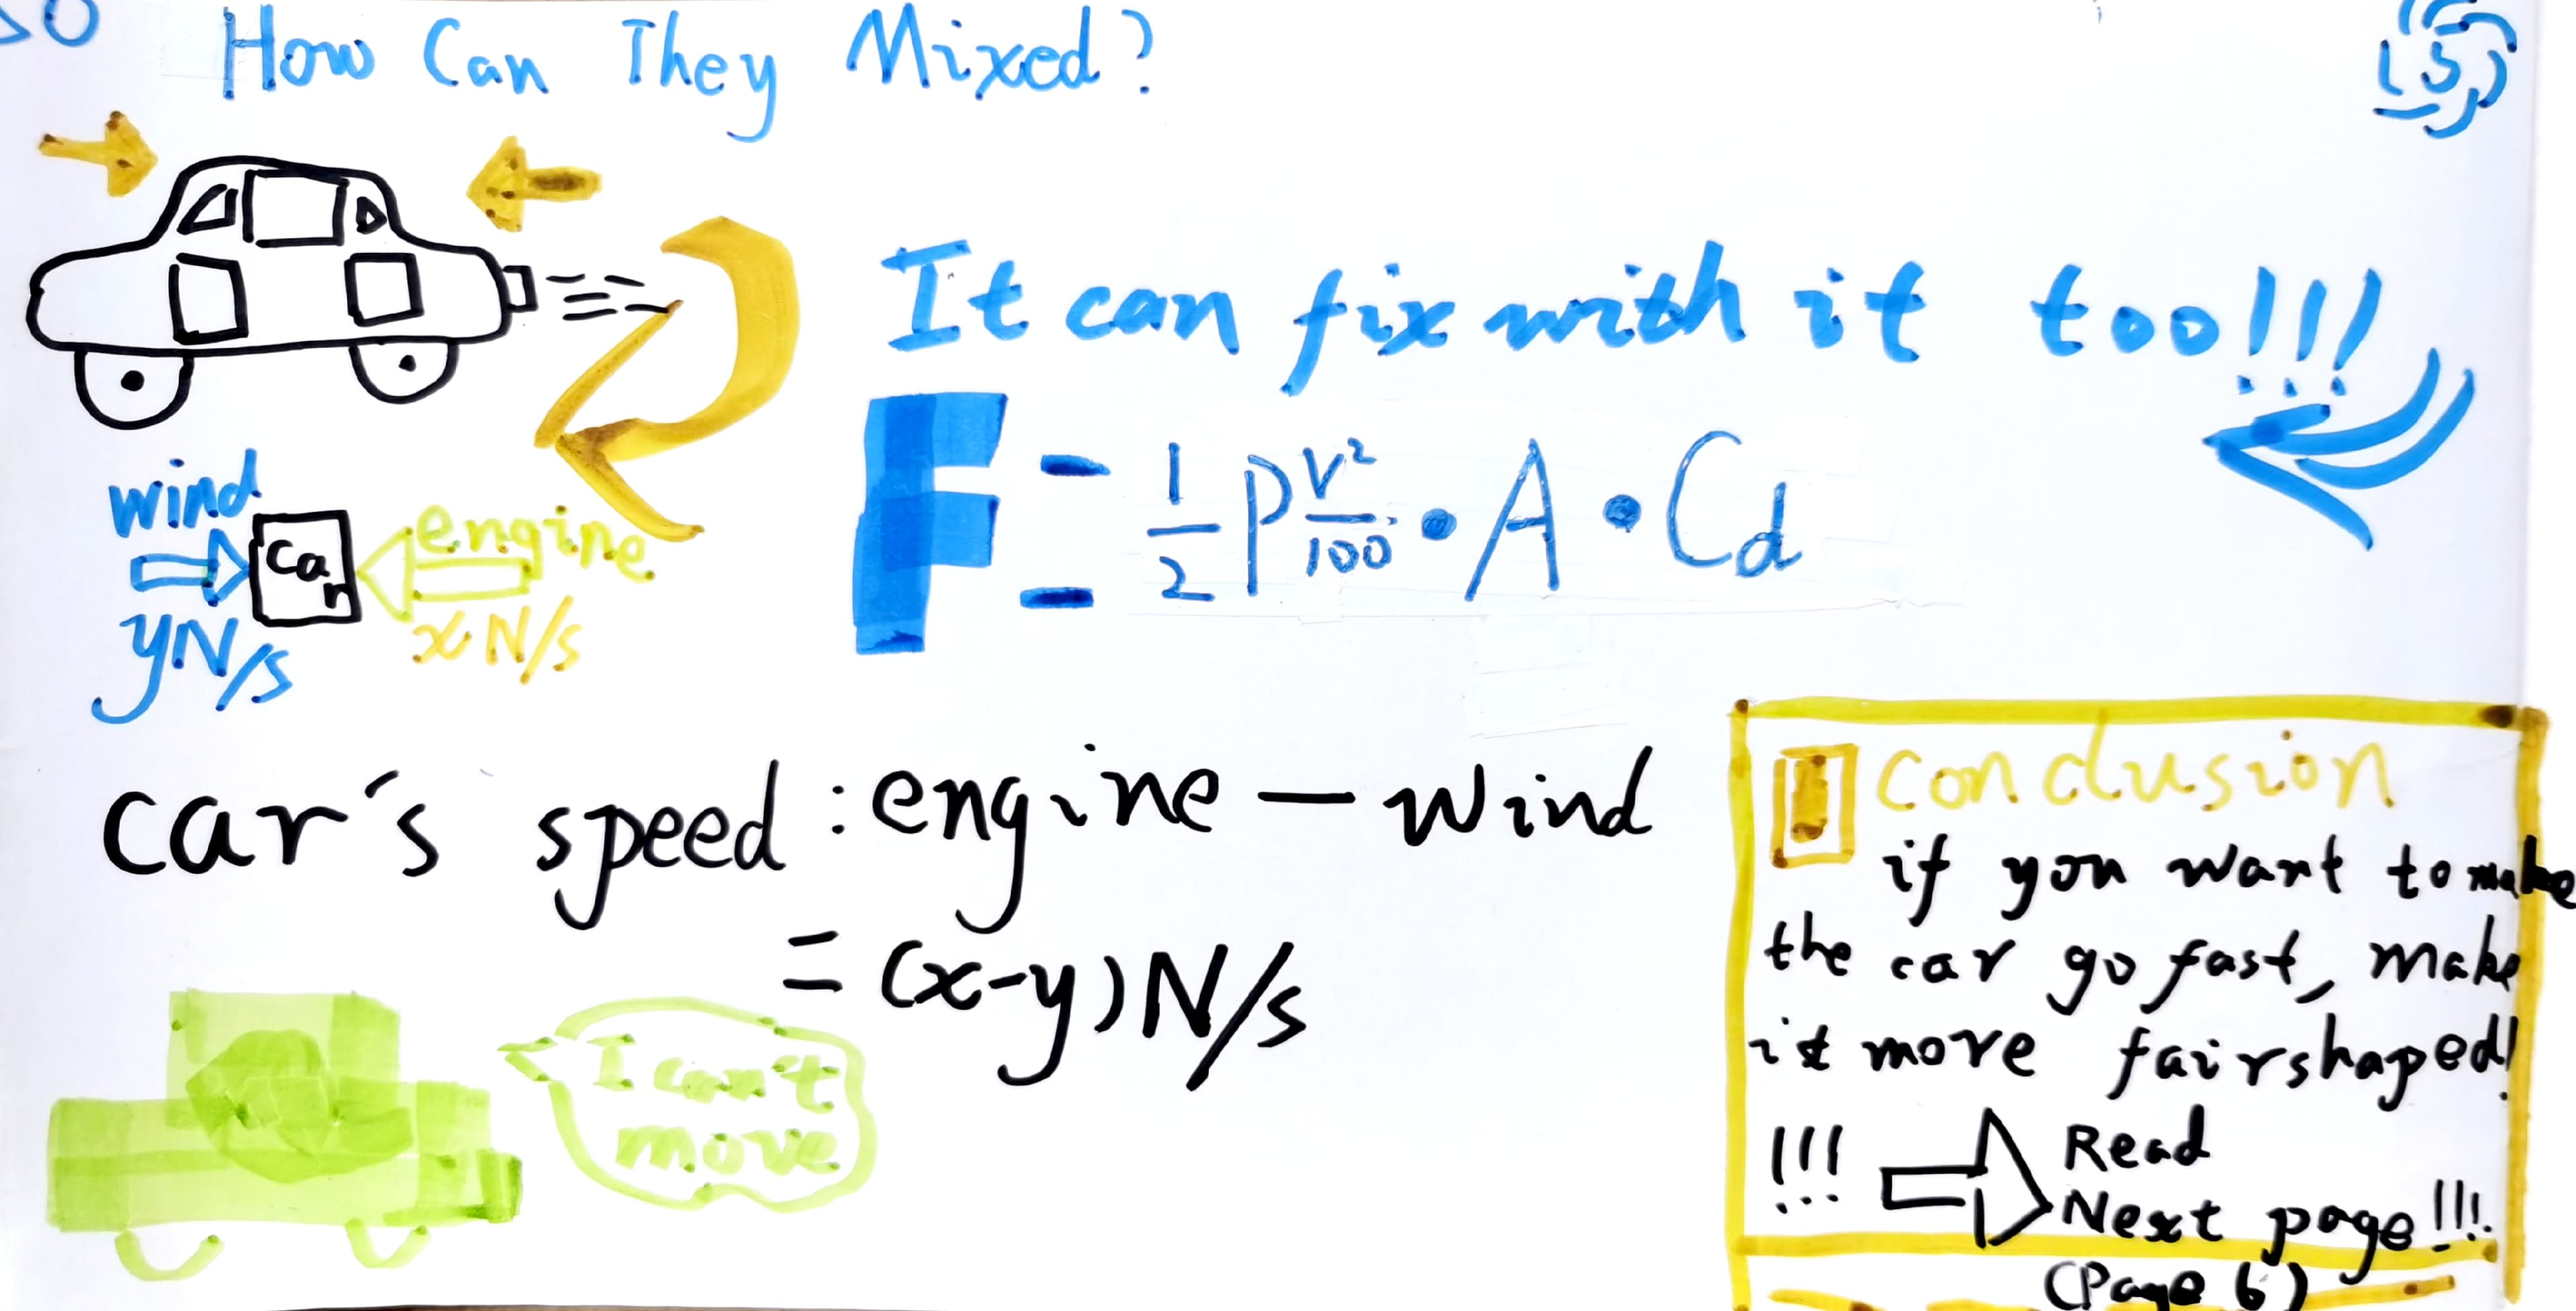 How Can They Mixed?
5
It can fix with it too!!!
F = 1/2 P V²/100 • A • Cd
wind
engine
Car
yN/s
xN/s
car's speed : engine — wind
= (x-y) N/s
I can't
move
! conclusion
if you want to make
the car go fast, make
it more fairshaped!
!!! Read
Next page!!!
(Page 6)